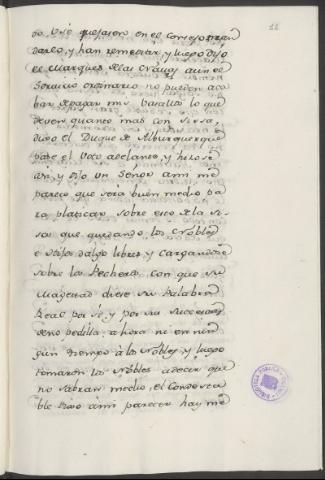 do, Vsé quexaron en el Consejo man
darlo, y han remediar, y luego dijo
el Marques delas Nabas, aun el
Servicio ordinario no pueden aca
bar depagar mis vasallos lo que
deven, quanto mas con sissa,
dixo el Duque de Alburquerque
pase el Voto adelante, y hizose
asi, y dijo un Señor ami me
parece que sera buen medio pa
ra platicar sobre esto dela si
sa que quedando los Nobles
e Hijos dalgo libres, y cargandose
sobre los Pecheros, con que su
Magestad diese su Palabra
Real por sí, y por sus succesores
deno pedilla, ahora ni en nin
gun tiempo alos Nobles, y luego
tornaron los Nobles adecir que
no sabian medio, el Condesta
ble dixo ami parecer hay me